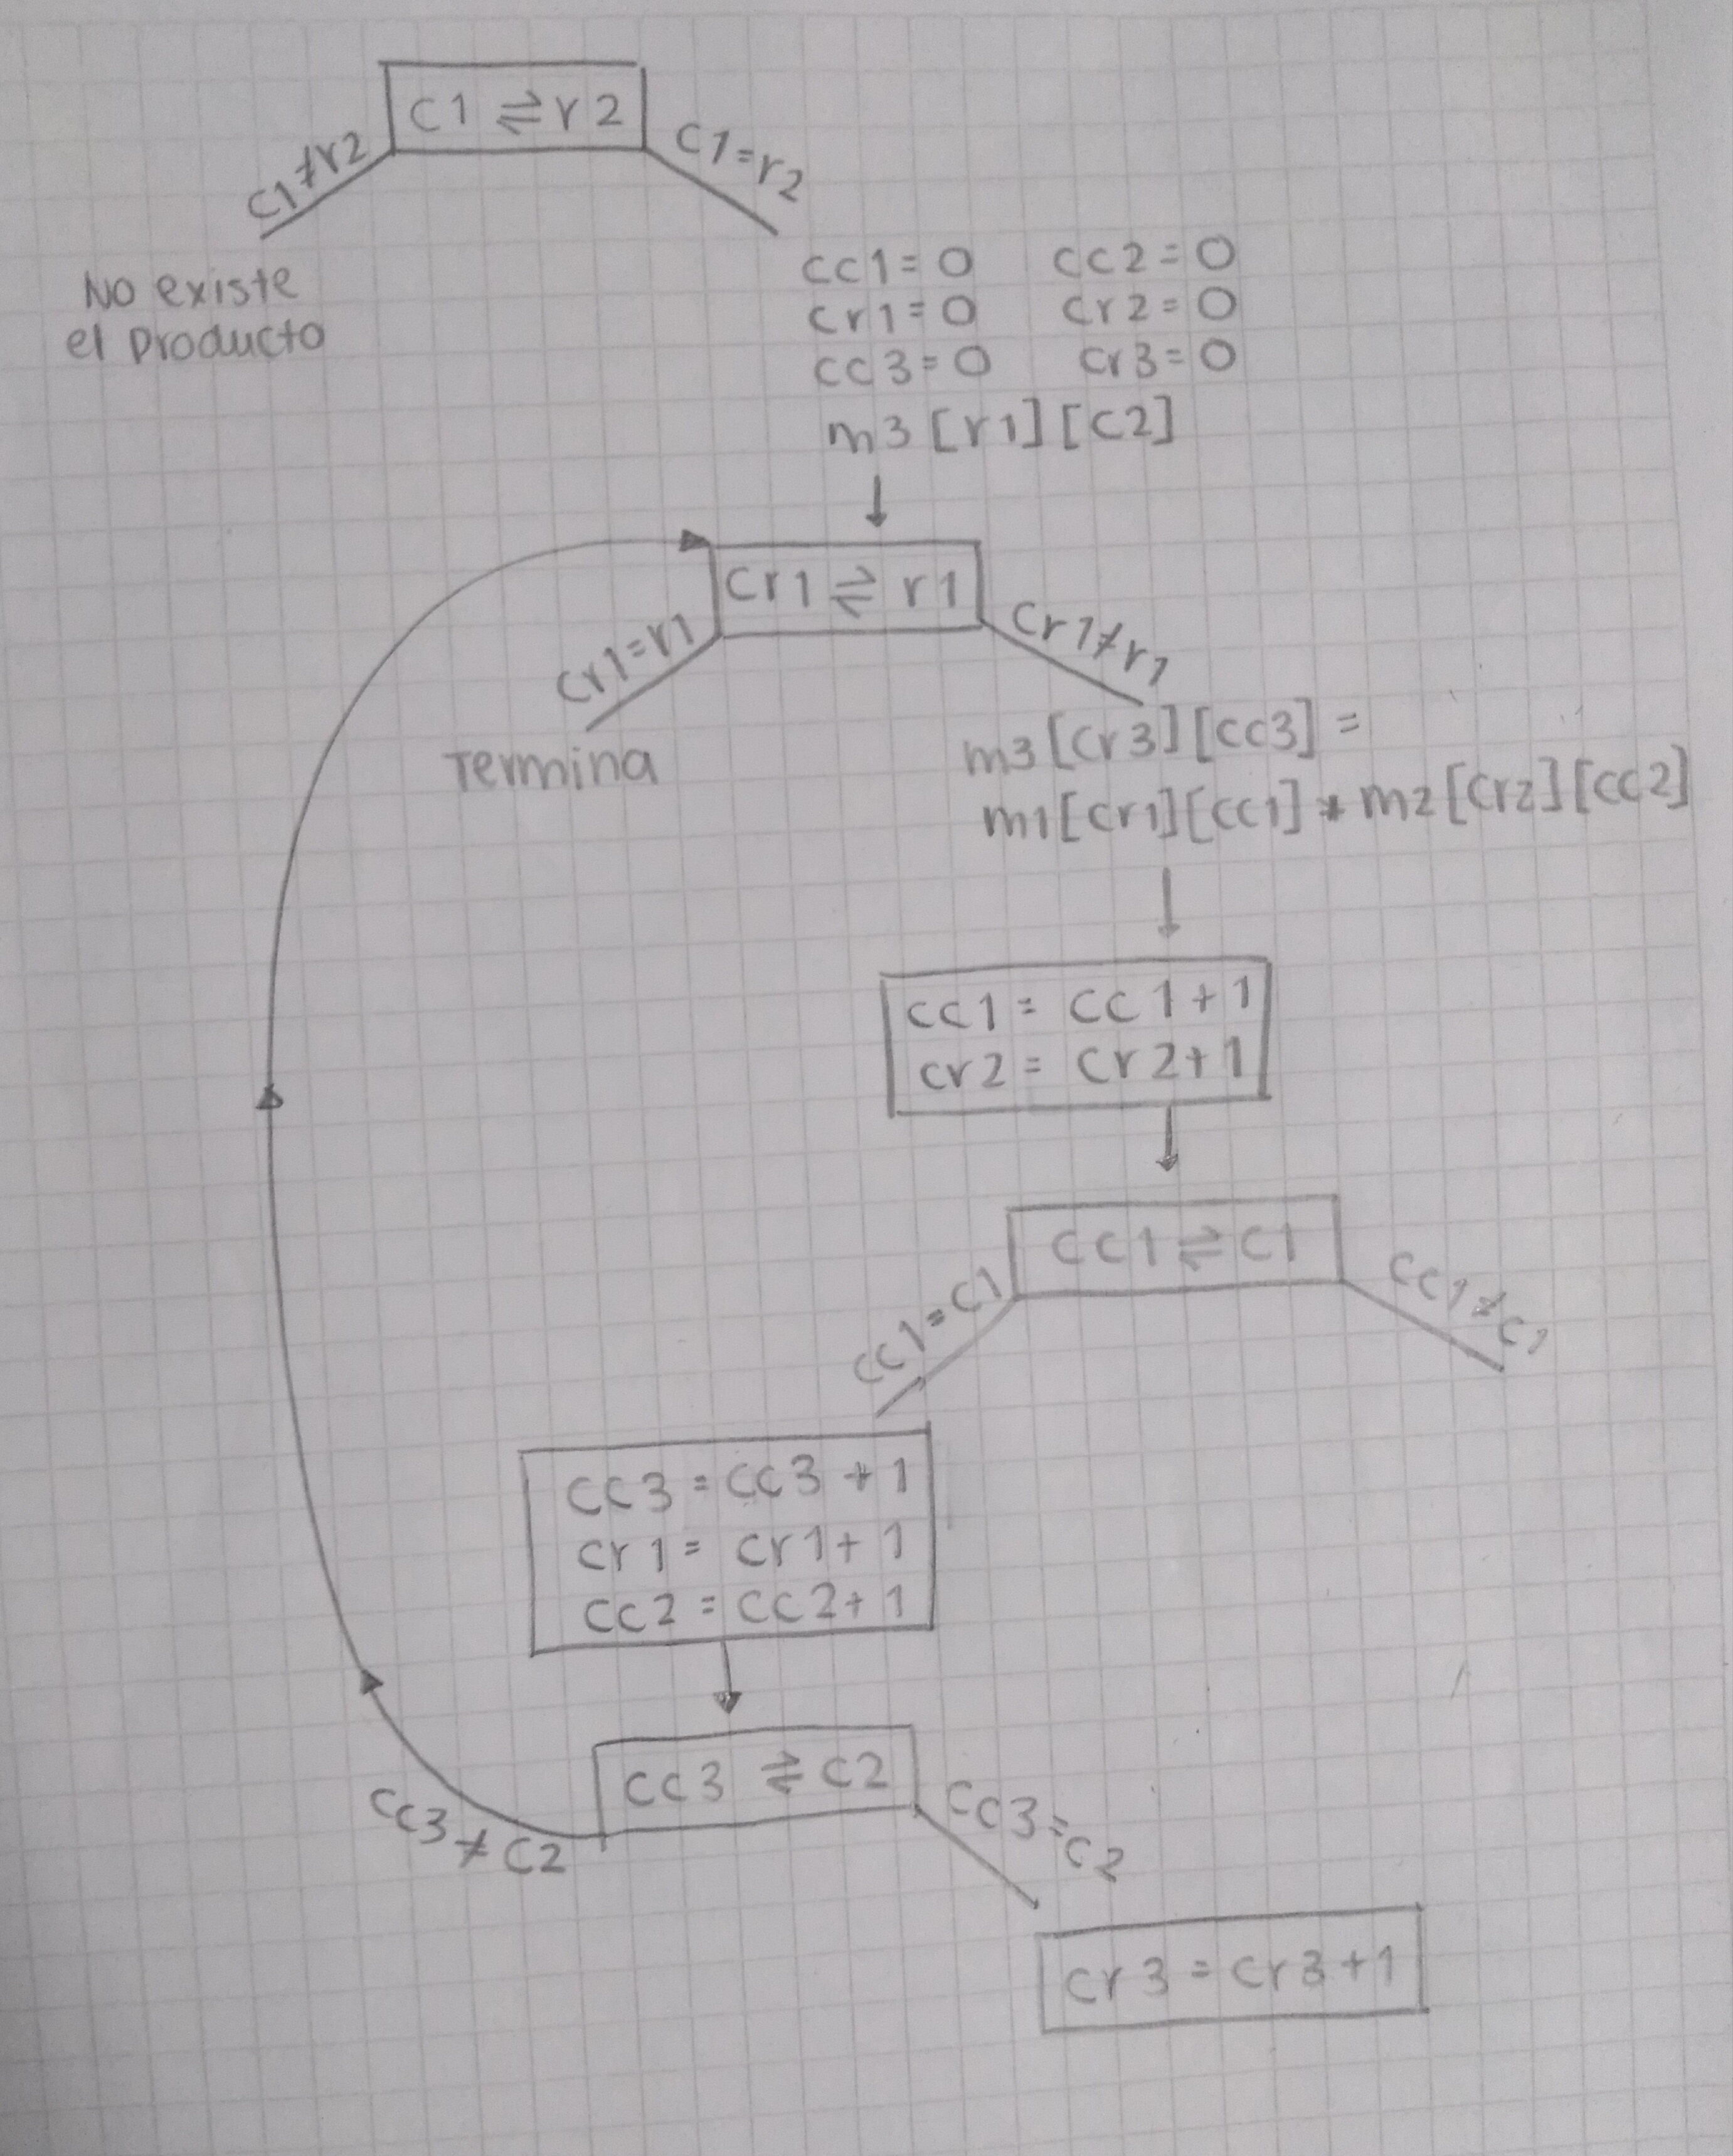 C1 ⇌ r2
C1≠r2
C1=r2
No existe
el Producto
cc1=0 cc2=0
cr1=0 cr2=0
cc3=0 cr3=0
m3[r1][c2]
Cr1 ⇌ r1
Cr1=r1
Cr1≠r1
Termina
m3[Cr3][cc3] =
m1[cr1][cc1] * m2[cr2][cc2]
cc1 = cc1+1
cr2 = cr2+1
cc1 ⇌ c1
cc1=c1
cc1≠c1
cc3 = cc3 +1
cr1 = cr1+ 1
cc2 = cc2+ 1
cc3 ⇌ c2
cc3≠c2
cc3=c2
cr3 = cr3+1